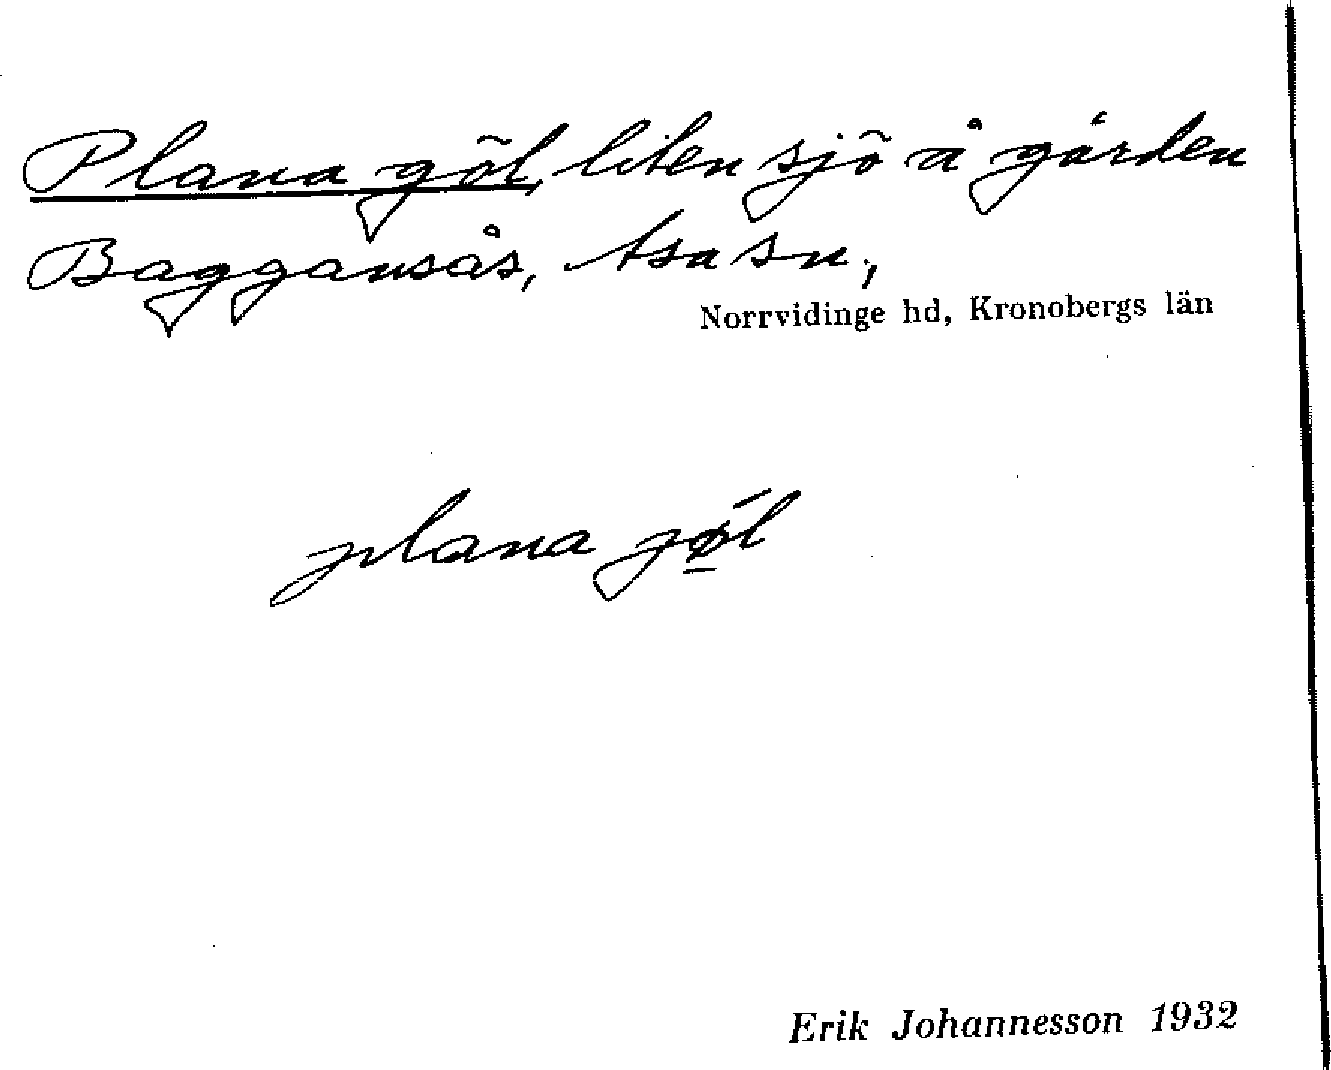 Plana göl, liten sjö å gården
Baggansås, Asa sn.,
Norrvidinge hd, Kronobergs län
plana jǿ̱l
Erik Johannesson 1932